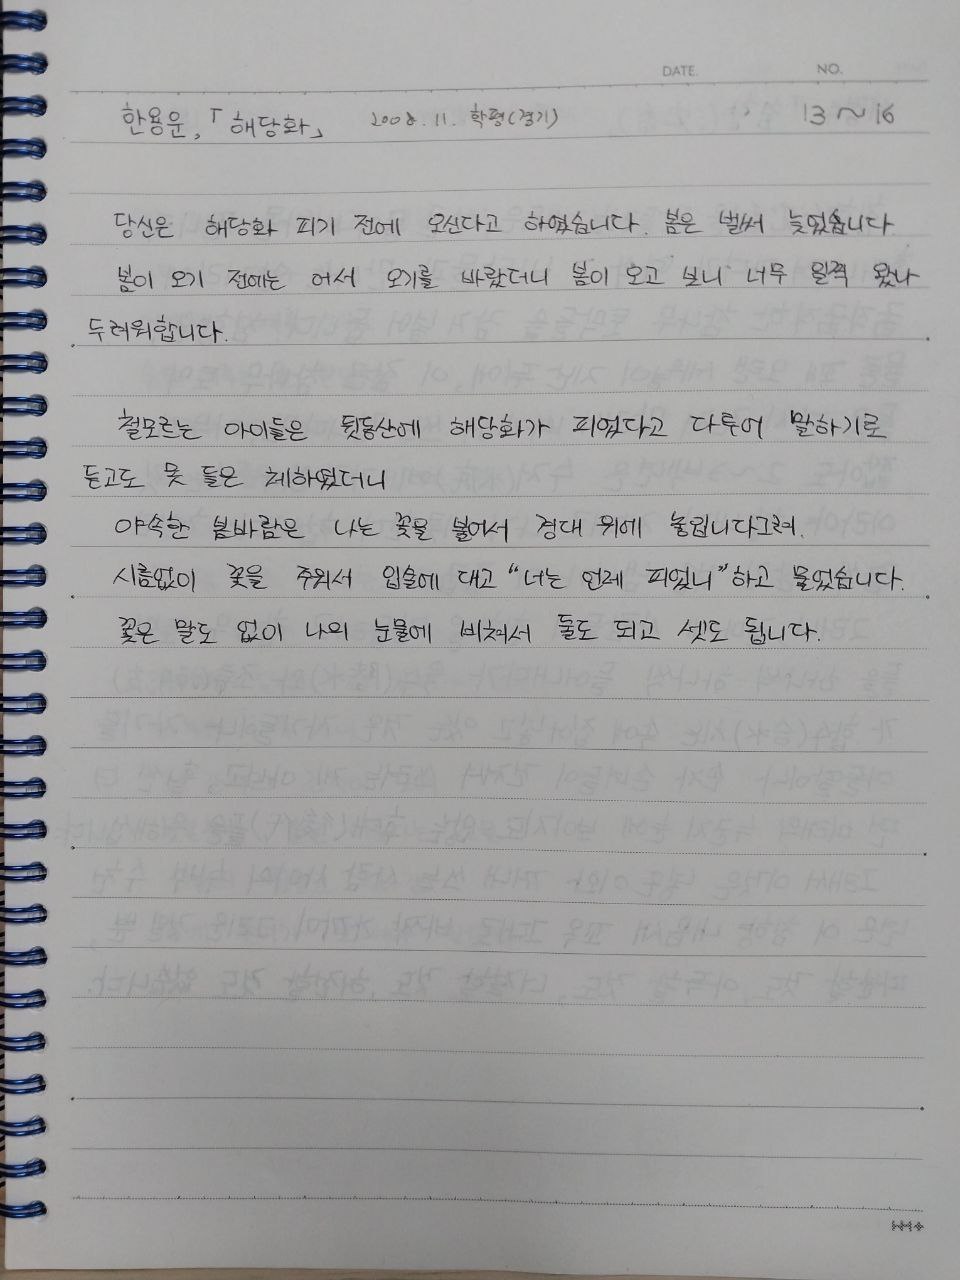 DATE. NO.
한용운, 「해당화」 2008. 11. 학평(경기) 13~16
당신은 해당화 피기 전에 오신다고 하였습니다. 봄은 벌써 늦었습니다
봄이 오기 전에는 어서 오기를 바랐더니 봄이 오고 보니 너무 일찍 왔나
두려워합니다.
철모르는 아이들은 뒷동산에 해당화가 피었다고 다투어 말하기로
듣고도 못 들은 체하였더니
야속한 봄바람은 나는 꽃을 불어서 경대 위에 놓입니다그려.
시름없이 꽃을 주워서 입술에 대고 "너는 언제 피었니" 하고 물었습니다.
꽃은 말도 없이 나의 눈물에 비쳐서 둘도 되고 셋도 됩니다.